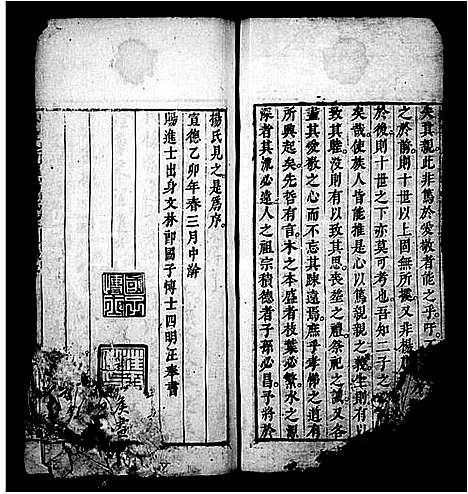 矣其親此非篤於愛敬者能之乎吁
之於前則十世以上固無所據又非楊
於後則十世之下亦莫可考也吾知二子之
矣哉使族人皆能推是心以篤親親之義生則有以
致其雖沒則有以致其思喪葬之禮祭祀之誠又各
盡其愛敬之心而不忘其疎遠焉庶乎孝弟之道有
所興起矣先哲有言木之本盛者枝葉必繁水之源
深者其流必遠人之祖宗積德者子孫必昌予將於
楊氏見之是為序
宣德乙卯年春三月中澣
賜進士出身文林郎國子博士四明汪奉書